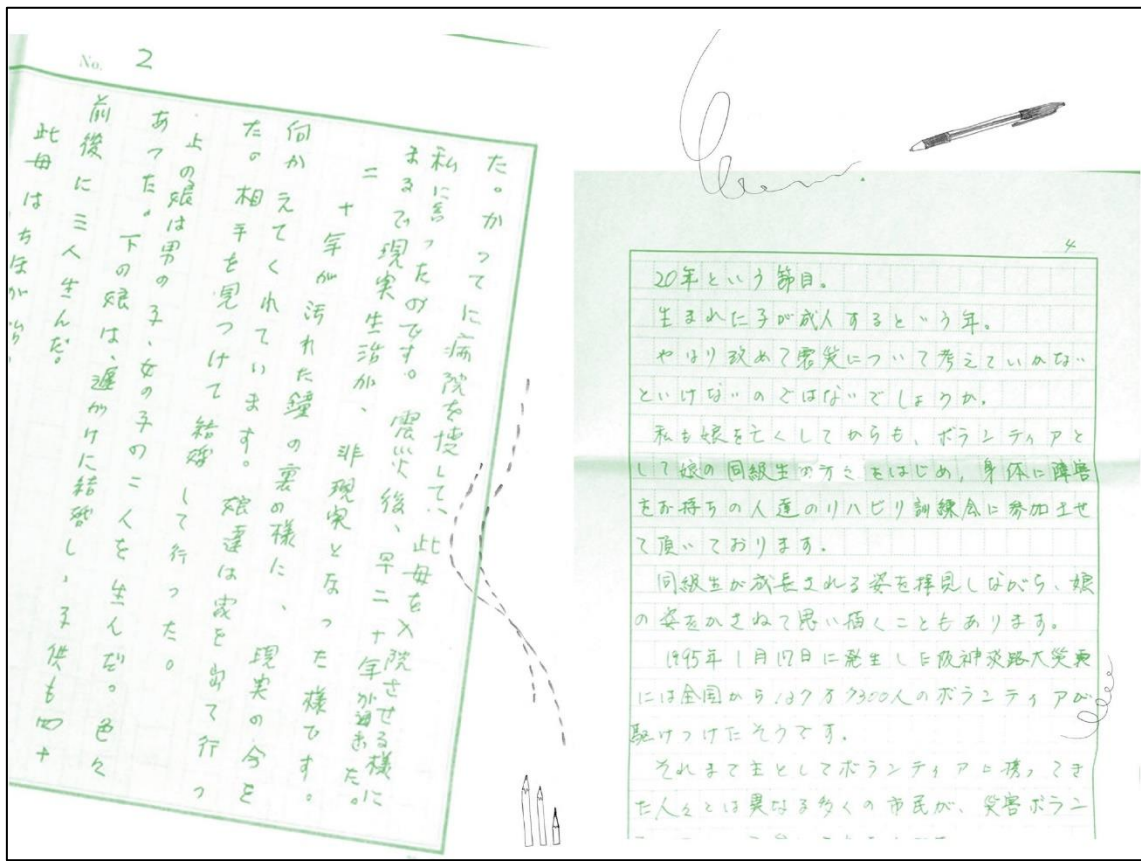 No. 2
た。かつてに病院を壊して、此母を入院させる様に
私に言ったのです。震災後、早二十年が過ぎた。
まるで現実生活が、非現実となった様です。
二十年が汚れた鐘の裏の様に、現実の今を
何かえてくれています。娘達は家を出て行っ
た。相手を見つけて結婚して行った。
上の娘は男の子、女の子の二人を生んだ。色々
あった。下の娘は、遅がけに結婚し、子供も四十
前後に三人生んだ。
此母は
4
20年という節目。
生まれた子が成人するという年。
やはり改めて震災について考えていかない
といけないのではないでしょうか。
私も娘を亡くしてからも、ボランティアと
して娘の同級生の方々をはじめ、身体に障害
をお持ちの人達のリハビリ訓練会に参加させ
て頂いております。
同級生が成長される姿を拝見しながら、娘
の姿をかさねて思い描くこともあります。
1995年1月17日に発生した阪神淡路大災
には全国から137万7300人のボランティアが
駆けつけたそうです。
それまで主としてボランティアに携ってき
た人々とは異なる多くの市民が、災害ボラン